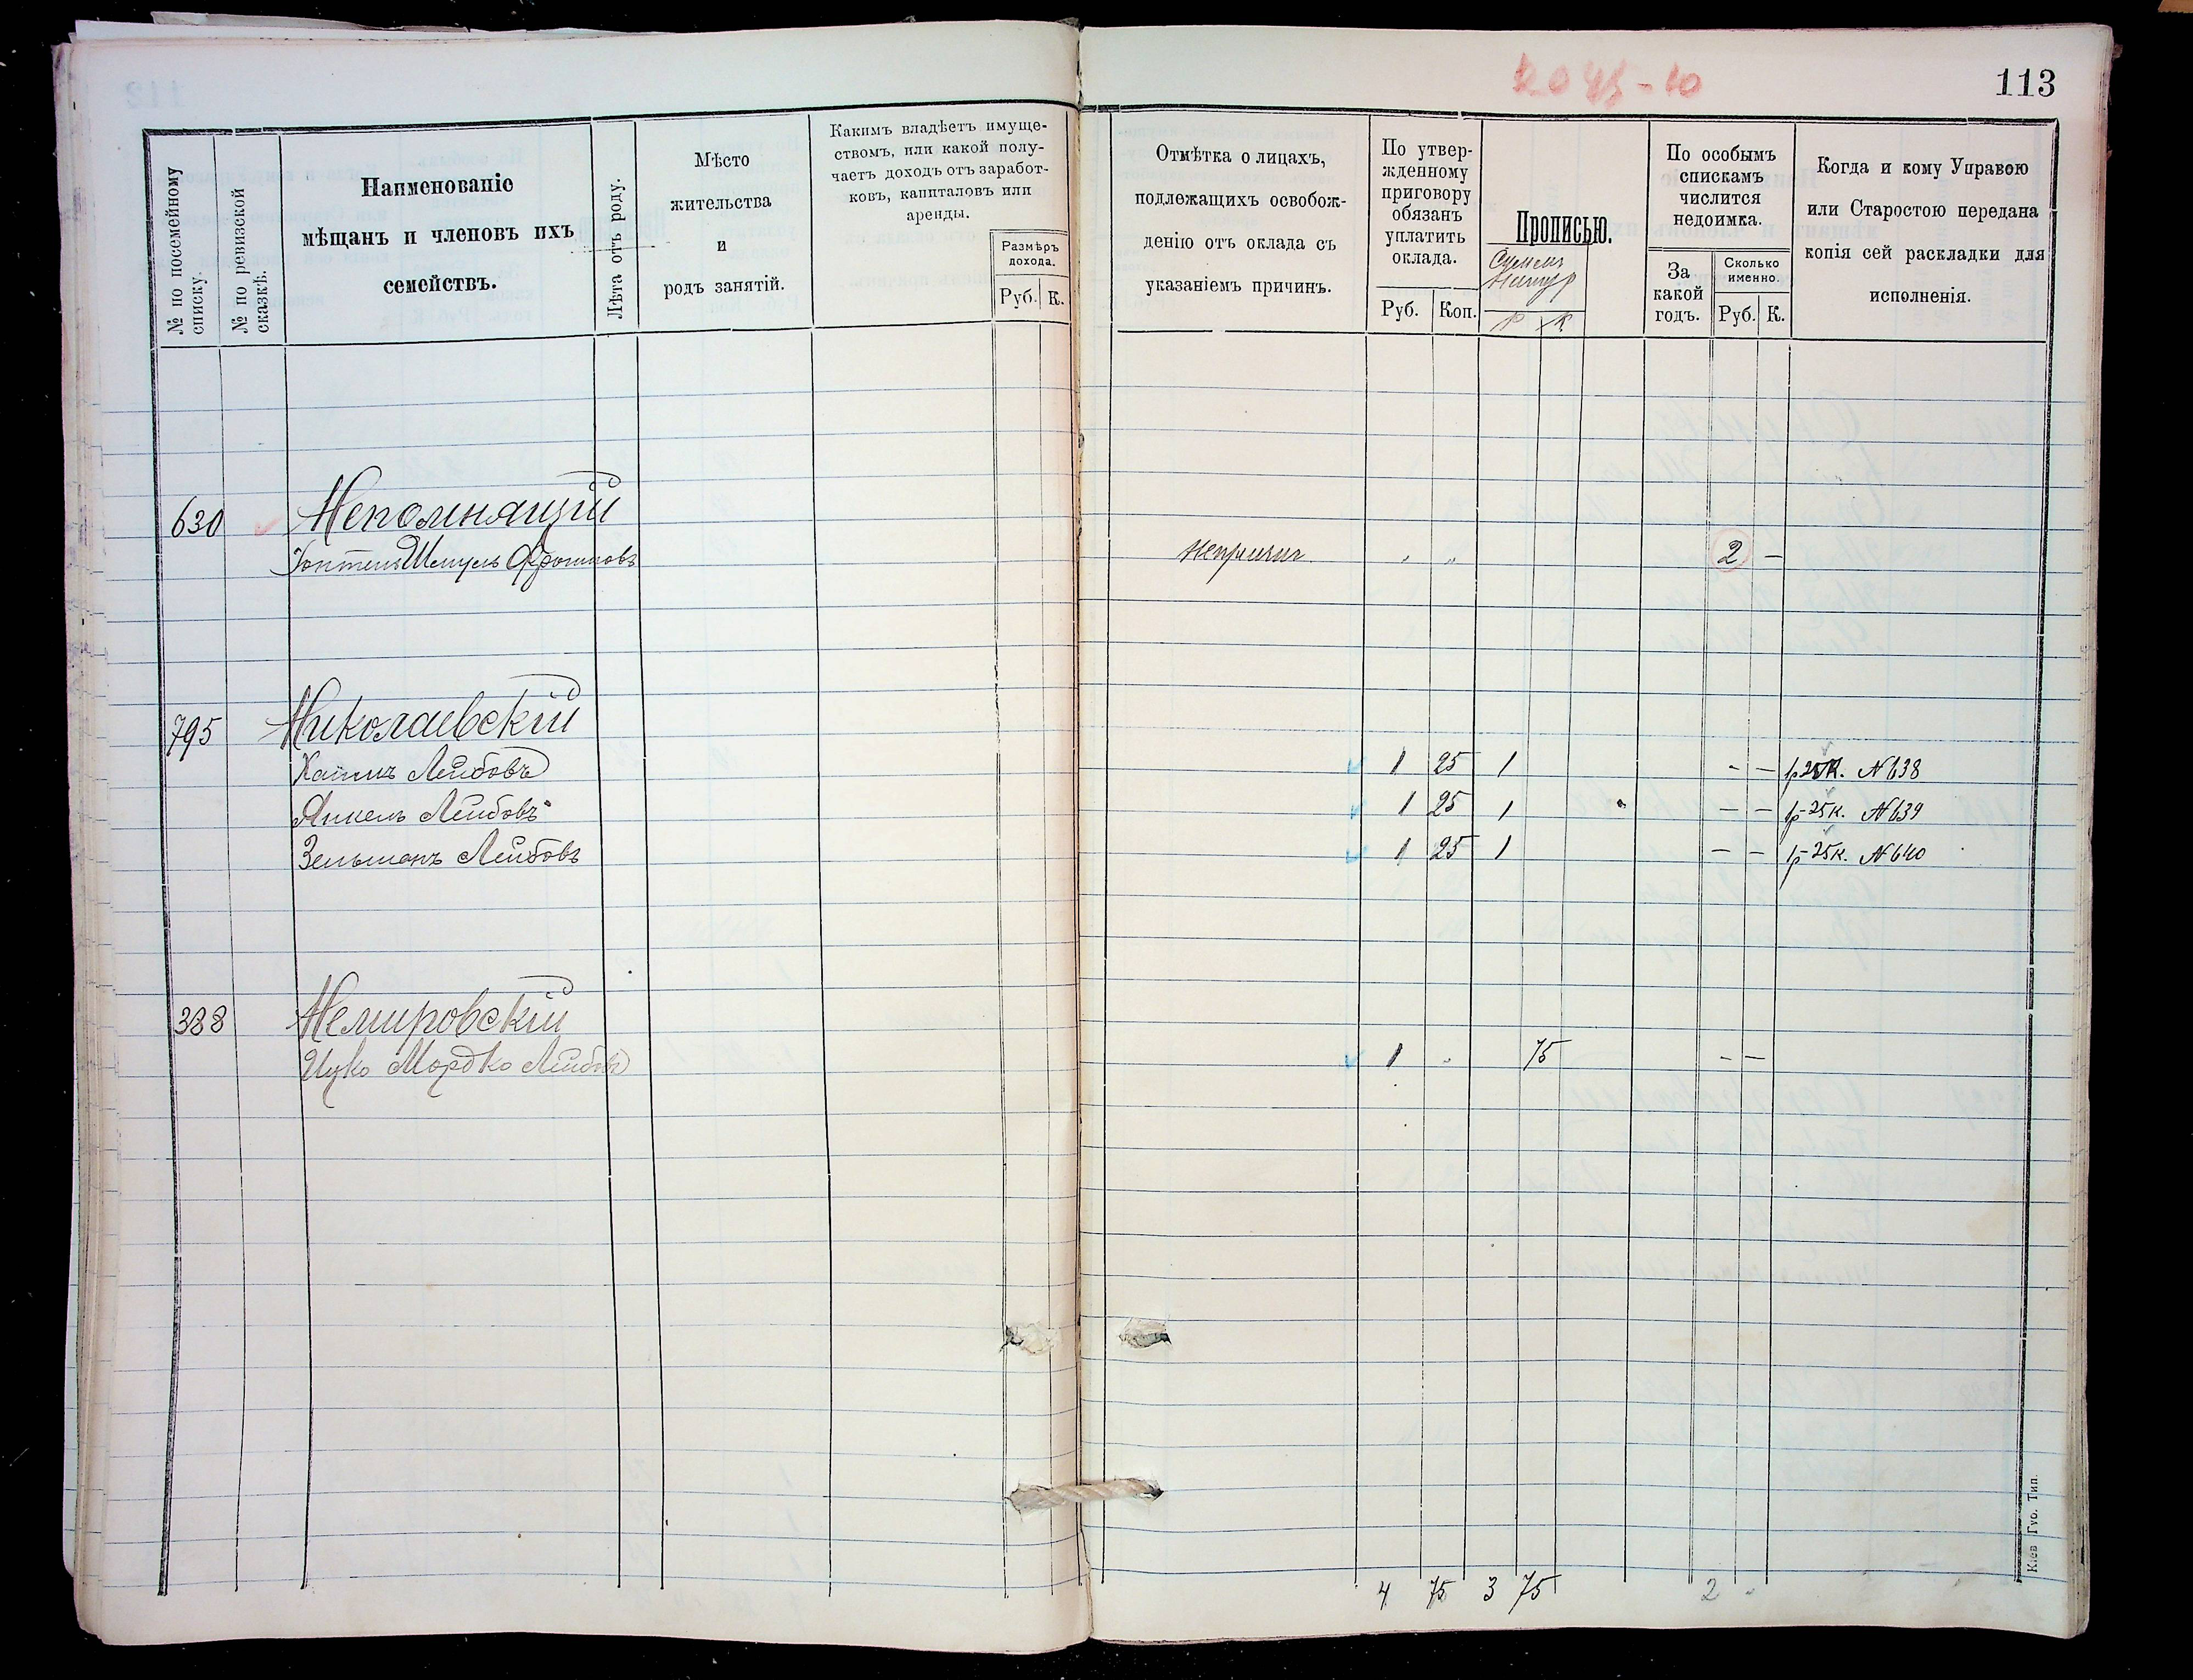 113
№ по посемейному списку.
№ по ревизской сказкѣ.
Наименованіе
мѣщанъ и членовъ ихъ
семействъ.
Лѣта отъ роду.
Мѣсто
жительства
и
родъ занятій.
Какимъ владѣетъ имуще-
ствомъ, или какой полу-
чаетъ доходъ отъ заработ-
ковъ, капиталовъ или
аренды.
Размѣръ
дохода.
Руб. К.
Отмѣтка о лицахъ,
подлежащихъ освобож-
денію отъ оклада съ
указаніемъ причинъ.
По утвер-
жденному
приговору
обязанъ
уплатить
оклада.
Руб. Коп.
Прописью.
Р К
По особымъ
спискамъ
числится
недоимка.
За
какой
годъ.
Сколько
именно.
Руб. К.
Когда и кому Управою
или Старостою передана
копія сей раскладки для
исполненія.
630 Непомнящій
Шмуль 2 –
795 Николаевскій
Хаимъ Лейбовъ 1 25 1 - – 1р 25к. №638
Янкель Лейбовъ 1 25 1 – – 1р-25к. №639
Зельманъ Лейбовъ 1 25 1 – – 1р-25к. №640
388 Немировскій
Ицко Мордко Лейбовъ 1 " 75 - –
4 75 3 75 2 "
Кіев Губ. Тип.